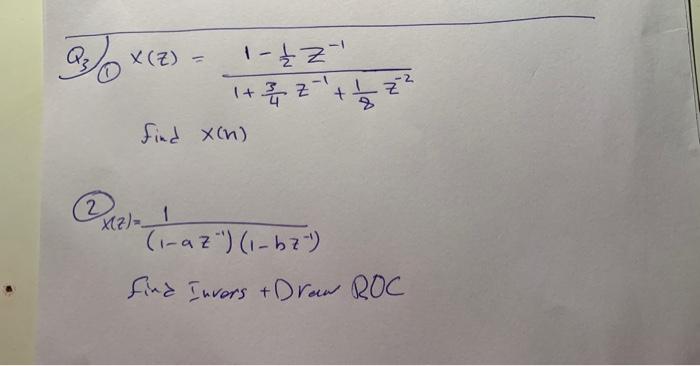 Q3) ① X(Z) = (1 - 1/2 Z^-1) / (1 + 3/4 Z^-1 + 1/8 Z^-2)
find X(n)
② X(Z) = 1 / ((1-aZ^-1)(1-bZ^-1))
find Invers + Draw ROC